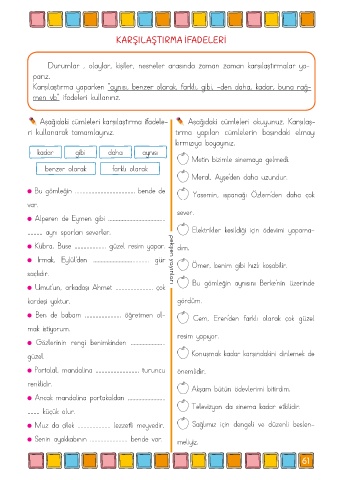 KARŞILAŞTIRMA İFADELERİ
Durumlar , olaylar, kişiler, nesneler arasında zaman zaman karşılaştırmalar ya-
parız.
Karşılaştırma yaparken "aynısı, benzer olarak, farklı, gibi, -den daha, kadar, buna rağ-
men vb" ifadeleri kullanırız.
Aşağıdaki cümleleri karşılaştırma ifadele-
ri kullanarak tamamlayınız.
kadar gibi daha aynısı
benzer olarak farklı olarak
Bu gömleğin .............................. bende de
var.
Alperen de Eymen gibi .............................
......... aynı sporları severler.
Kübra, Buse ............... güzel resim yapar.
Irmak, Eylül'den ............................. gür
saçlıdır.
Umut'un, arkadaşı Ahmet ................... çok
kardeşi yoktur.
Ben de babam ............... öğretmen ol-
mak istiyorum.
Gözlerinin rengi benimkinden .................
güzel.
Portakal, mandalina ..................... turuncu
renklidir.
Ancak mandalina portakaldan .................
....... küçük olur.
Muz da elma ................. lezzetli meyvedir.
Senin ayakkabının ................... bende var.
Aşağıdaki cümleleri okuyunuz. Karşılaş-
tırma yapılan cümlelerin başındaki elmayı
kırmızıya boyayınız.
Metin bizimle sinemaya gelmedi.
Meral, Ayşe'den daha uzundur.
Yasemin, ıspanağı Özlem'den daha çok
sever.
Elektrikler kesildiği için ödevimi yapama-
dım.
Ömer, benim gibi hızlı koşabilir.
Bu gömleğin aynısını Berke'nin üzerinde
gördüm.
Cem, Eren'den farklı olarak çok güzel
resim yapıyor.
Konuşmak kadar karşındakini dinlemek de
önemlidir.
Akşam bütün ödevlerimi bitirdim.
Televizyon da sinema kadar etkilidir.
Sağlımız için dengeli ve düzenli beslen-
meliyiz.
61